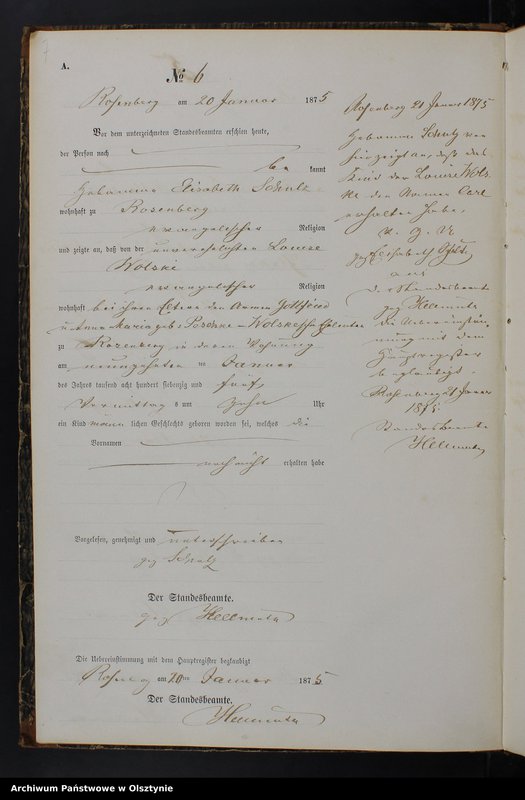 7
A.
№ 6
Rosenberg am 20 Januar 1875
Vor dem unterzeichneten Standesbeamten erschien heute,
der Person nach
be kannt
Hebamme Elisabeth Schulz
wohnhaft zu Rosenberg
evangelischer Religion
und zeigte an, daß von der unverehelichten Louise
Wolski
evangelischer Religion
wohnhaft bei ihren Eltern den Armen Gottfried
und Maria geb: Poschke - Wolskeschen Eheleuten
zu Rosenberg in deren Wohnung
am neunzehnten ten Januar
des Jahres tausend acht hundert siebenzig und fünf
Vormittag s um Zehn Uhr
ein Kind männ lichen Geschlechts geboren worden sei, welches die
Vornamen
noch nicht erhalten habe
Vorgelesen, genehmigt und unterschrieben
gez Schulz
Der Standesbeamte.
gez Hellmuth
Die Uebereinstimmung mit dem Hauptregister beglaubigt
Rosenberg am 20ten Januar 1875
Der Standesbeamte.
Hellmuth
Rosenberg 21 Januar 1875
Hebamme Schulz
hier zeigt an, daß das
Kind der Louise Wols-
ki den Namen Carl
erhalten habe.
v. g. u.
gez Elisabeth Schulz
a u s
Der Standesbeamte
gez Hellmuth
die Uebereinstim-
mung mit dem
Hauptregister
beglaubigt.
Rosenberg 21 Januar
1875
Standesbeamte
Hellmuth
Archiwum Państwowe w Olsztynie